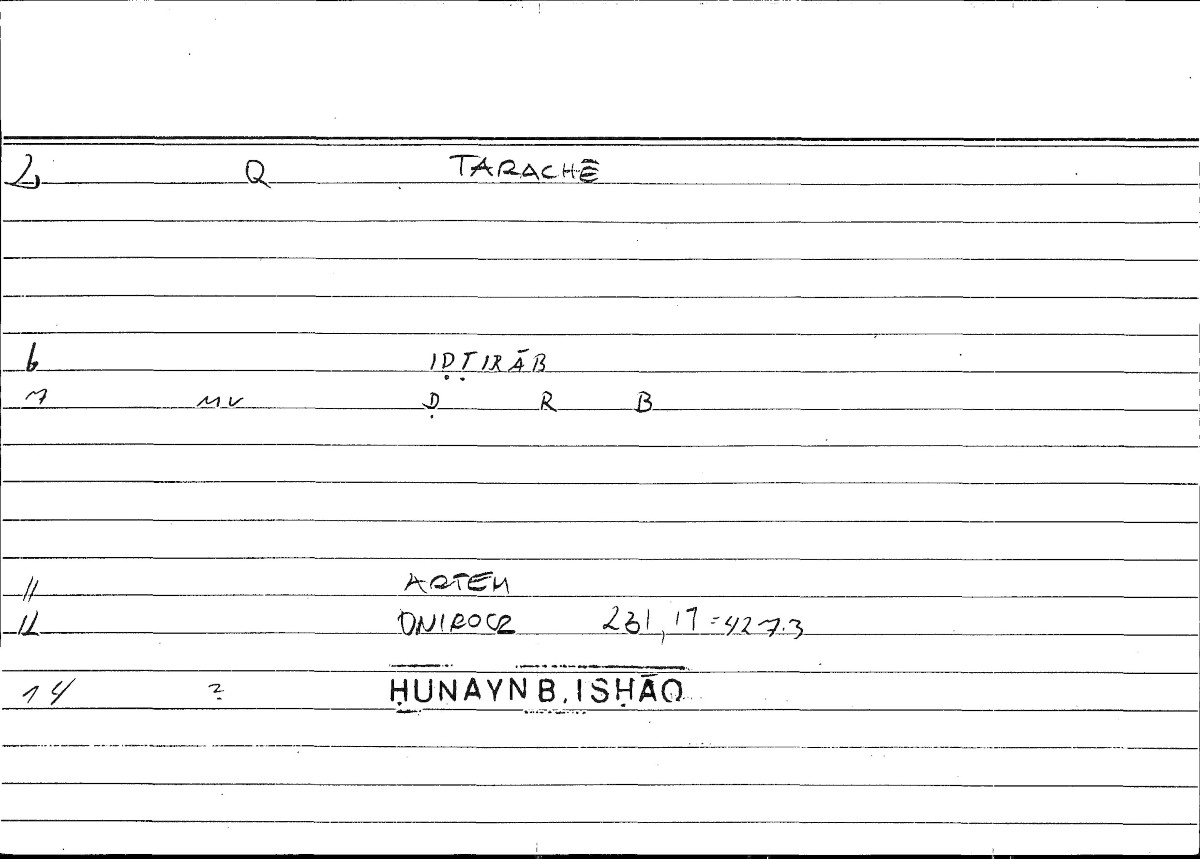 2 Q TARACHĒ
6 IḌṬIRĀB
7 MV Ḍ R B
11 ARTEM
12 ONIROCR 231,17=427.3
14 2 ḤUNAYN B. ISḤĀQ